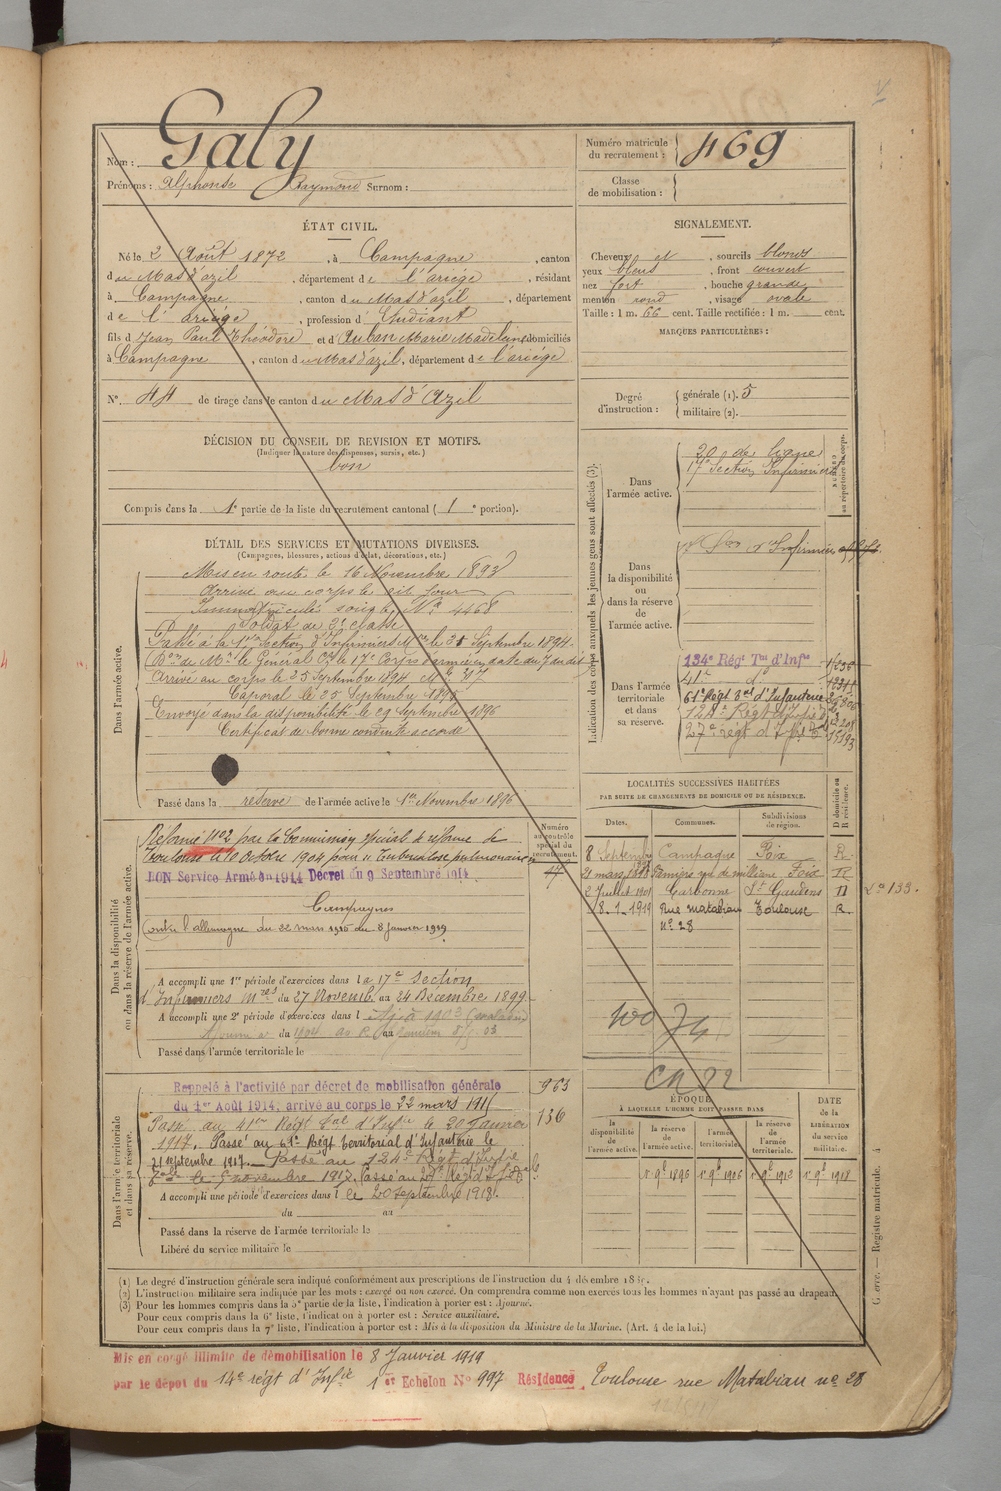 Nom : Galy
Prénoms : Alphonse Raymond Surnom :
Numéro matricule du recrutement : 469
Classe de mobilisation :
ÉTAT CIVIL.
Né le 2 Août 1872, à Campagne, canton
du Mas d'azil, département de l'ariége, résidant
à Campagne, canton du Mas d'azil, département
de l'ariége, profession d'Etudiant
fils d Jean Paul Théodore et d'Auban Marie Madeleine domiciliés
à Campagne, canton du Mas d'azil, département de l'ariége
N° 44 de tirage dans le canton du Mas d'Azil
DÉCISION DU CONSEIL DE REVISION ET MOTIFS.
(Indiquer la nature des dispenses, sursis, etc.)
bon
Compris dans la 1e partie de la liste du recrutement cantonal (1e portion).
SIGNALEMENT.
Cheveux et, sourcils blonds
yeux bleus, front couvert
nez fort, bouche grande
menton rond, visage ovale
Taille : 1 m. 66 cent. Taille rectifiée : 1 m. cent.
MARQUES PARTICULIÈRES :
Degré d'instruction : générale (1). 5
militaire (2).
DÉTAIL DES SERVICES ET MUTATIONS DIVERSES.
(Campagnes, blessures, actions d'éclat, décorations, etc.)
Dans l'armée active.
Mis en route le 16 Novembre 1893
Arrivé au corps le dit jour
Immatriculé sous le N° 4468
Soldat de 2e classe
Passé à la 17e Section d'Infirmiers Mres le 25 Septembre 1894.
Don de Mr le Général Ct le 17e Corps d'armée en date du 7 du dit
Arrivé au corps le 25 Septembre 1894
Caporal le 25 Septembre 1895
Envoyé dans la disponibilité le 29 Septembre 1896
Certificat de bonne conduite accordé
Passé dans la réserve de l'armée active le 1er Novembre 1896
Indication des corps auxquels les jeunes gens sont affectés (3).
NUMÉRO au répertoire du corps.
Dans l'armée active.
20e de ligne
17e Section Infirmiers
Dans la disponibilité ou dans la réserve de l'armée active.
Dans l'armée territoriale et dans sa réserve.
134e Régt Tal d'Infie
41e d°
61e Régt Tal d'Infanterie
124e Régt d'Infie Tle
27e régt d'Infie Tle
LOCALITÉS SUCCESSIVES HABITÉES
PAR SUITE DE CHANGEMENTS DE DOMICILE OU DE RÉSIDENCE.
Dates. Communes. Subdivisions de région. D domicile ou R résidence.
8 Septembre Campagne Foix R
21 mars 1898 Foix R
2 Juillet 1901 Carbonne St Gaudens D
8-1-1919 Rue matabiau n° 28 Toulouse R
Dans la disponibilité ou dans la réserve de l'armée active.
Numéro au contrôle spécial du recrutement.
Réformé N° 2 par la Commission spéciale de réforme de
Toulouse le 10 Octobre 1904 pour "Tuberculose pulmonaire"
BON Service Armé en 1914 Décret du 9 Septembre 1914
Campagnes
Contre l'allemagne du 22 mars 1916 au 8 Janvier 1919
A accompli une 1re période d'exercices dans la 17e Section
d'Infirmiers Mres du 27 Novemb. au 24 Décembre 1899
A accompli une 2e période d'exercices dans l
Passé dans l'armée territoriale le
CR 92
Dans l'armée territoriale et dans sa réserve.
Rappelé à l'activité par décret de mobilisation générale
du 1er Août 1914, arrivé au corps le 22 mars 1916
Passé au 41e Régt Tal d'Infie le 20 Janvier
1917. Passé au 61e Régt territorial d'Infanterie le
21 septembre 1917. Passé au 124e Régt d'Infie
Tle le 5 novembre 1917. Passé au 27e Régt d'Infie Tle
A accompli une période d'exercices dans l le 20 septembre 1918.
du au
Passé dans la réserve de l'armée territoriale le
Libéré du service militaire le
963
136
ÉPOQUE
À LAQUELLE L'HOMME DOIT PASSER DANS
DATE de la LIBÉRATION du service militaire.
la disponibilité de l'armée active. la réserve de l'armée active. l'armée territoriale. la réserve de l'armée territoriale.
1er 9bre 1896 1er 9bre 1906 1er 9bre 1912 1er 9bre 1918
(1) Le degré d'instruction générale sera indiqué conformément aux prescriptions de l'instruction du 4 décembre 18
(2) L'instruction militaire sera indiquée par les mots : exercé ou non exercé. On comprendra comme non exercés tous les hommes n'ayant pas passé au drapeau.
(3) Pour les hommes compris dans la 5e partie de la liste, l'indication à porter est : Ajourné.
Pour ceux compris dans la 6e liste, l'indication à porter est : Service auxiliaire.
Pour ceux compris dans la 7e liste, l'indication à porter est : Mis à la disposition du Ministre de la Marine. (Art. 4 de la loi.)
Registre matricule. 4
Mis en congé illimité de démobilisation le 8 Janvier 1919
par le dépôt du 14e régt d'Infie 1er Echelon N° 997 Résidence Toulouse rue Matabiau n° 28